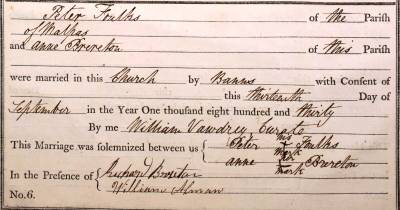 Peter Foulks of the Parish
of Malhas
and Anne Brereton of this Parish
were married in this Church by Banns with Consent of
this thirteenth Day of
September in the Year One thousand eight hundred and thirty
By me William Vawdrey Curate
This Marriage was solemnized between us { Peter his mark Foulks
anne her mark Brereton
In the Presence of { Richard Brereton
William Alman
No. 6.